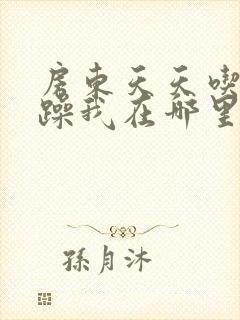 房东天天喫
躁我在哪里
孫月沐